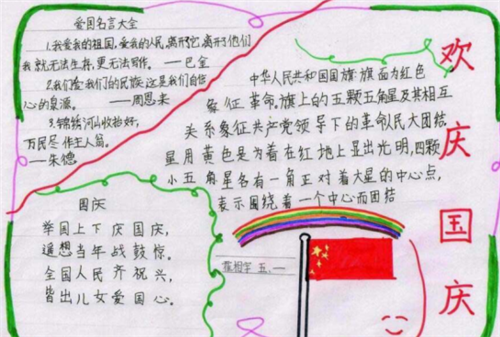 爱国名言大全
1.我爱我的祖国,爱我的人民,离开它,离开他们
我就无法生存,更无法写作。——巴金
2.我们爱我们的民族,这是我们自信
心的泉源。——周恩来
3.锦绣河山收拾好,
万民尽作主人翁。
——朱德
国庆
举国上下庆国庆,
遥想当年战鼓惊。
全国人民齐祝兴,
皆出儿女爱国心。
中华人民共和国国旗旗面为红色
象征革命,旗上的五颗五角星及其相互
关系象征共产党领导下的革命民大团结
星用黄色是为着在红地上显出光明,四颗
小五角星各有一角正对着大星的中心点,
表示围绕着一个中心而团结
五.一
欢
庆
国
庆